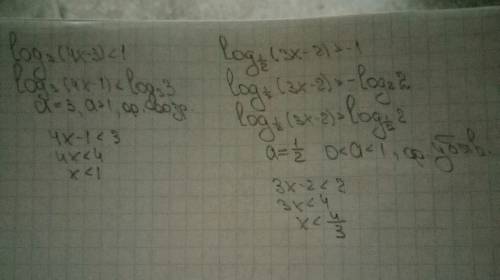 log₃(4x-3)<1
log₃(4x-1)<log₃3
a=3, a>1, ф. возр.
4x-1<3
4x<4
x<1
log½(3x-2)>-1
log½(3x-2)>-log₂2
log½(3x-2)>log½2
a=1/2 0<a<1, ф. убыв.
3x-2<2
3x<4
x<4/3